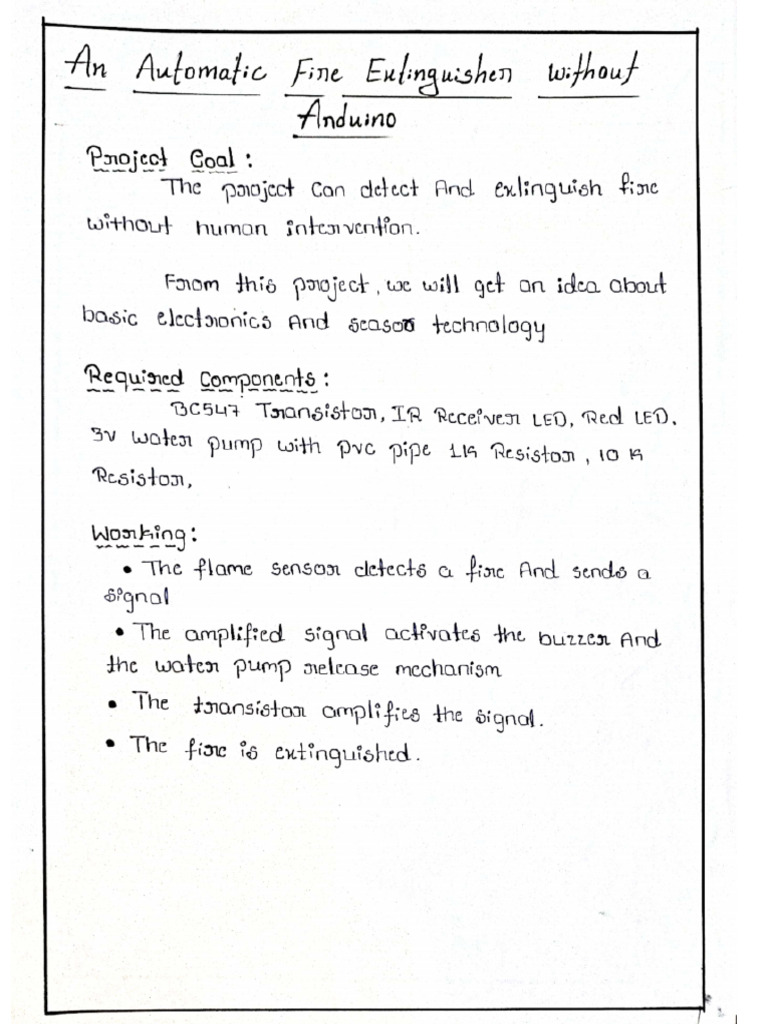 An Automatic Fire Extinguisher without
Arduino
Project Goal :
The project Can detect And extinguish fire
without human intervention.
From this project, we will get an idea about
basic electronics And seasor technology
Required Components :
BC547 Transistor, IR Receiver LED, Red LED,
3v water pump with pvc pipe 1K Resistor, 10 K
Resistor,
Working :
• The flame sensor detects a fire And sends a
signal
• The amplified signal activates the buzzer And
the water pump release mechanism
• The transistor amplifies the signal.
• The fire is extinguished.